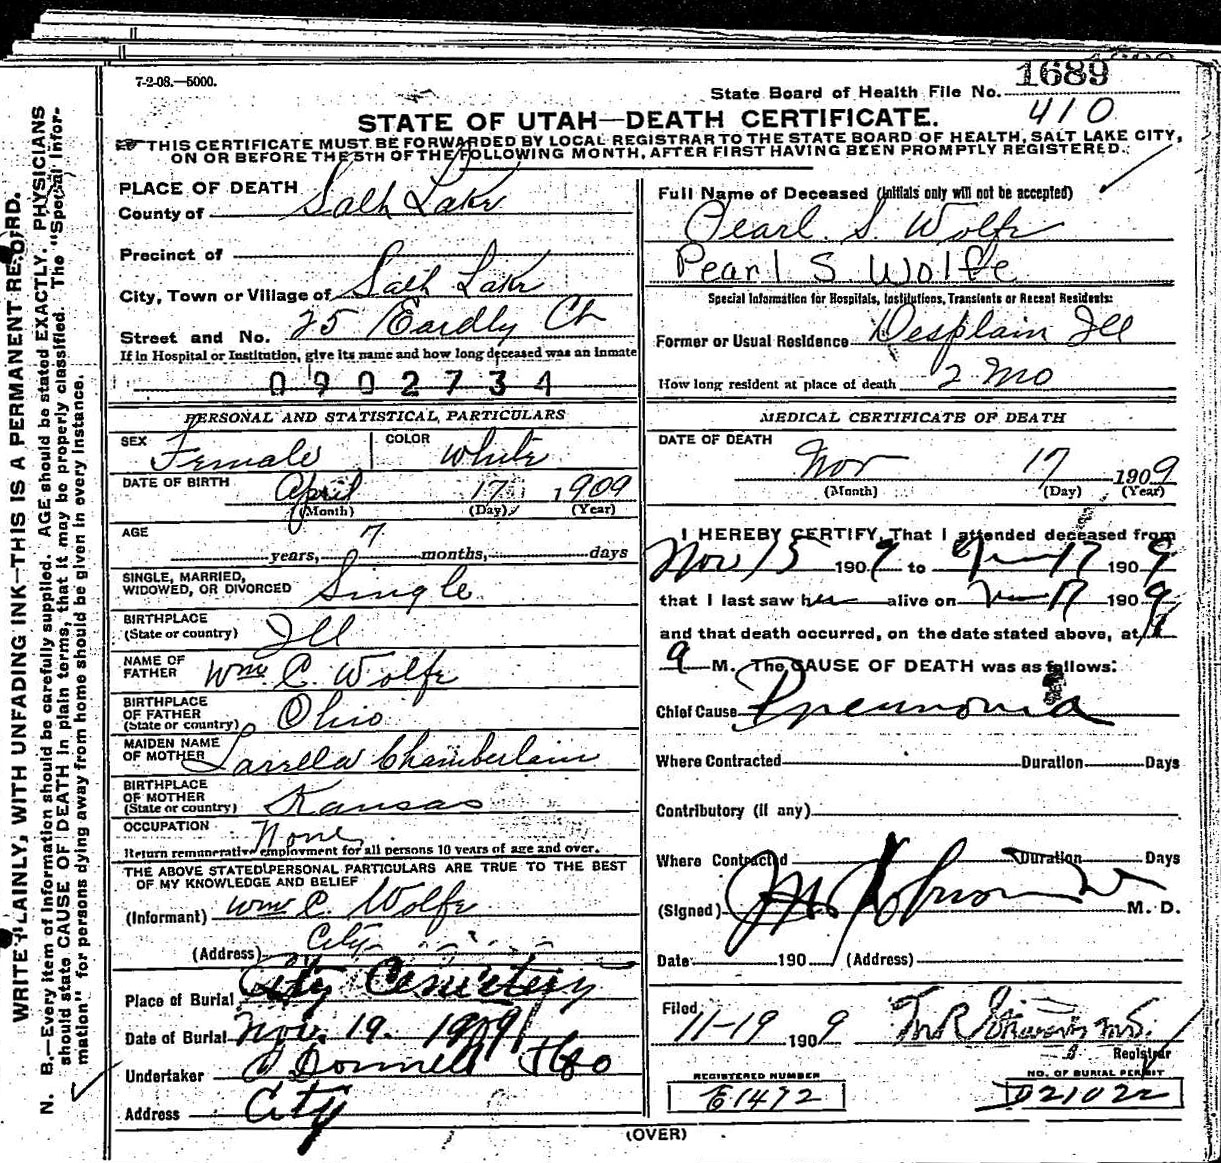 7-2-08.—5000.
State Board of Health File No. 1689
410
STATE OF UTAH—DEATH CERTIFICATE.
THIS CERTIFICATE MUST BE FORWARDED BY LOCAL REGISTRAR TO THE STATE BOARD OF HEALTH, SALT LAKE CITY,
ON OR BEFORE THE 5TH OF THE FOLLOWING MONTH, AFTER FIRST HAVING BEEN PROMPTLY REGISTERED.
PLACE OF DEATH
County of Salt Lake
Precinct of
City, Town or Village of Salt Lake
Street and No. 25 Eardly Ct
If in Hospital or Institution, give its name and how long deceased was an Inmate
0902734
PERSONAL AND STATISTICAL PARTICULARS
SEX Female COLOR White
DATE OF BIRTH April 17 1909
(Month) (Day) (Year)
AGE
years, 7 months, days
SINGLE, MARRIED,
WIDOWED, OR DIVORCED Single
BIRTHPLACE
(State or country) Ill
NAME OF
FATHER Wm. C. Wolfe
BIRTHPLACE
OF FATHER
(State or country) Ohio
MAIDEN NAME
OF MOTHER Larella Chamberlain
BIRTHPLACE
OF MOTHER
(State or country) Kansas
OCCUPATION None
Return remunerative employment for all persons 10 years of age and over.
THE ABOVE STATED PERSONAL PARTICULARS ARE TRUE TO THE BEST
OF MY KNOWLEDGE AND BELIEF
(Informant) Wm C. Wolfe
(Address) City
Place of Burial City Cemetery
Date of Burial Nov. 19. 1909
Undertaker O Donnell & Co
Address City
Full Name of Deceased (Initials only will not be accepted)
Pearl. S. Wolfe
Pearl S. Wolfe
Special Information for Hospitals, Institutions, Transients or Recent Residents:
Former or Usual Residence Desplain Ill
How long resident at place of death 2 Mo
MEDICAL CERTIFICATE OF DEATH
DATE OF DEATH
Nov 17 1909
(Month) (Day) (Year)
I HEREBY CERTIFY, That I attended deceased from
Nov 15 1909 to Nov 17 1909
that I last saw her alive on Nov 17 1909
and that death occurred, on the date stated above, at
M. The CAUSE OF DEATH was as follows:
Chief Cause Pneumonia
Where Contracted Duration Days
Contributory (if any)
Where Contracted Duration Days
(Signed) M. D.
Date 190 (Address)
Filed 11-19 1909
Registrar
REGISTERED NUMBER
E1472
NO. OF BURIAL PERMIT
D21022
(OVER)
WRITE PLAINLY, WITH UNFADING INK—THIS IS A PERMANENT RECORD.
N. B.—Every item of information should be carefully supplied. AGE should be stated EXACTLY. PHYSICIANS
should state CAUSE OF DEATH in plain terms, that it may be properly classified. The "Special Infor-
mation" for persons dying away from home should be given in every instance.